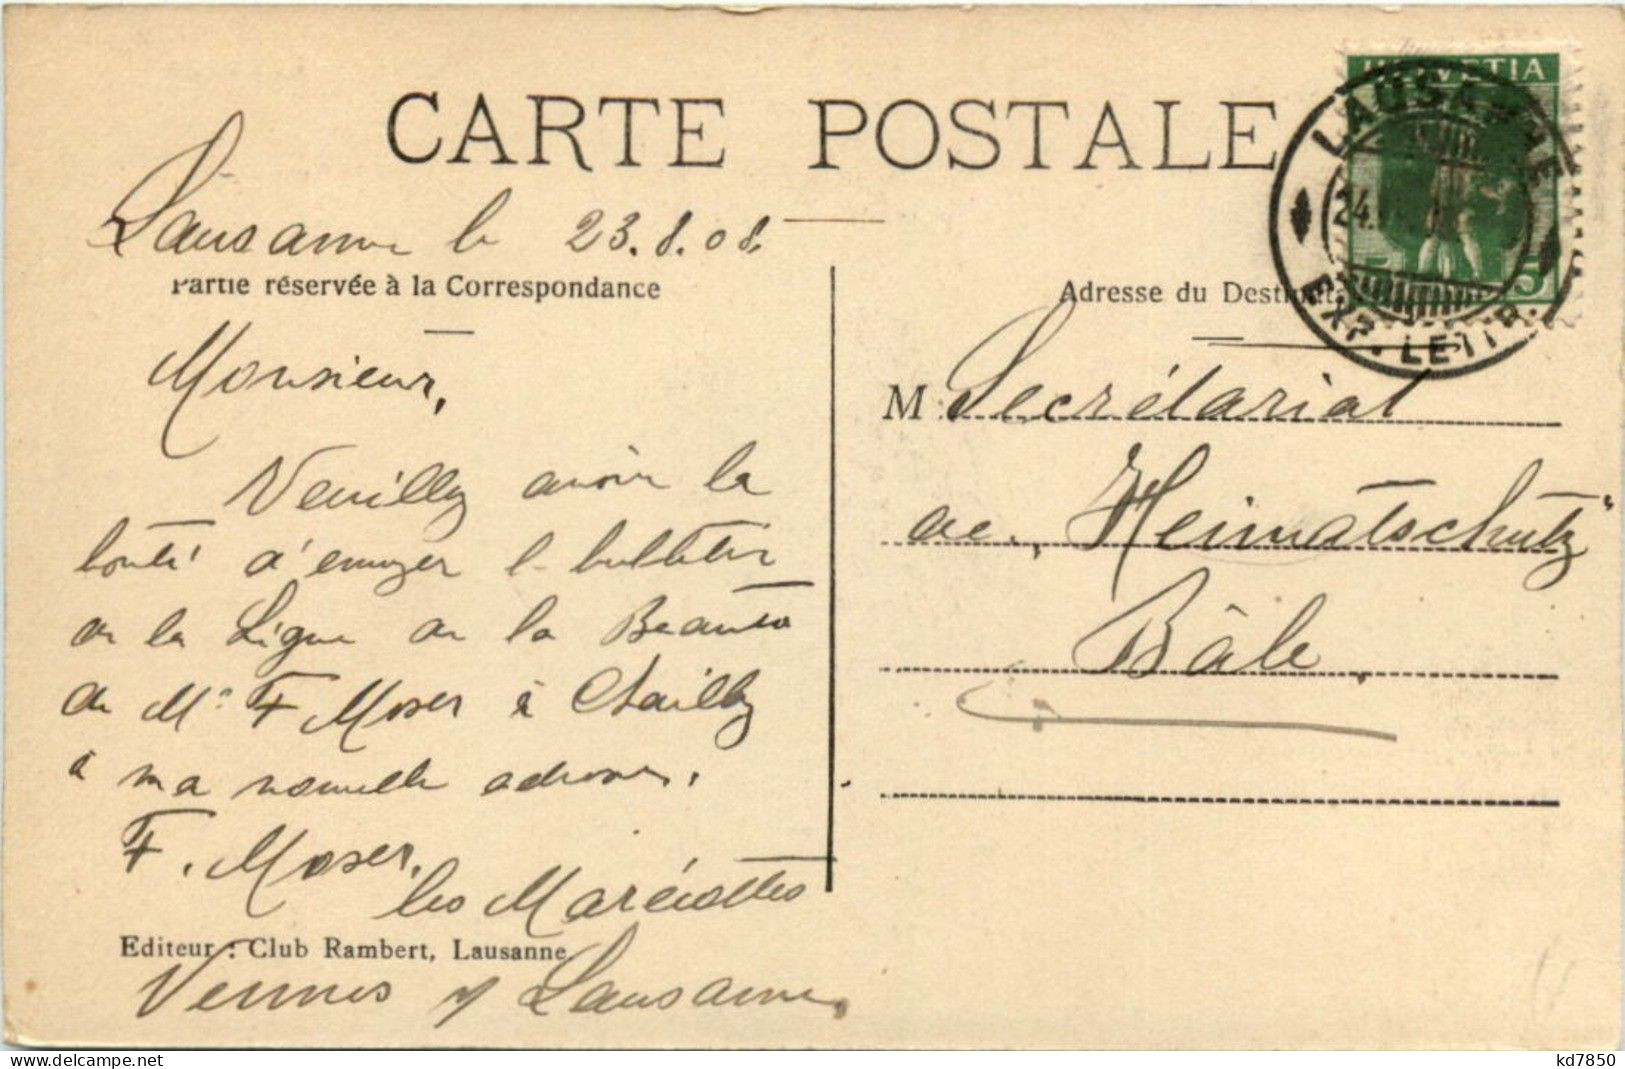 CARTE POSTALE
Lausanne le 23.8.08.
Partie réservée à la Correspondance
Monsieur,
Veuillez avoir la
bonté d'envoyer le bulletin
de la Ligue de la Beauté
de Mr F Moser à Chailly
à ma nouvelle adresse.
F. Moser.
les Maréviottes
Editeur : Club Rambert, Lausanne.
Vennes s/ Lausanne.
HELVETIA
5
LAUSANNE
24.
EXP. LETTR.
Adresse du Destinat
M Secrétariat
de „Heimatschutz"
Bâle
kd7850